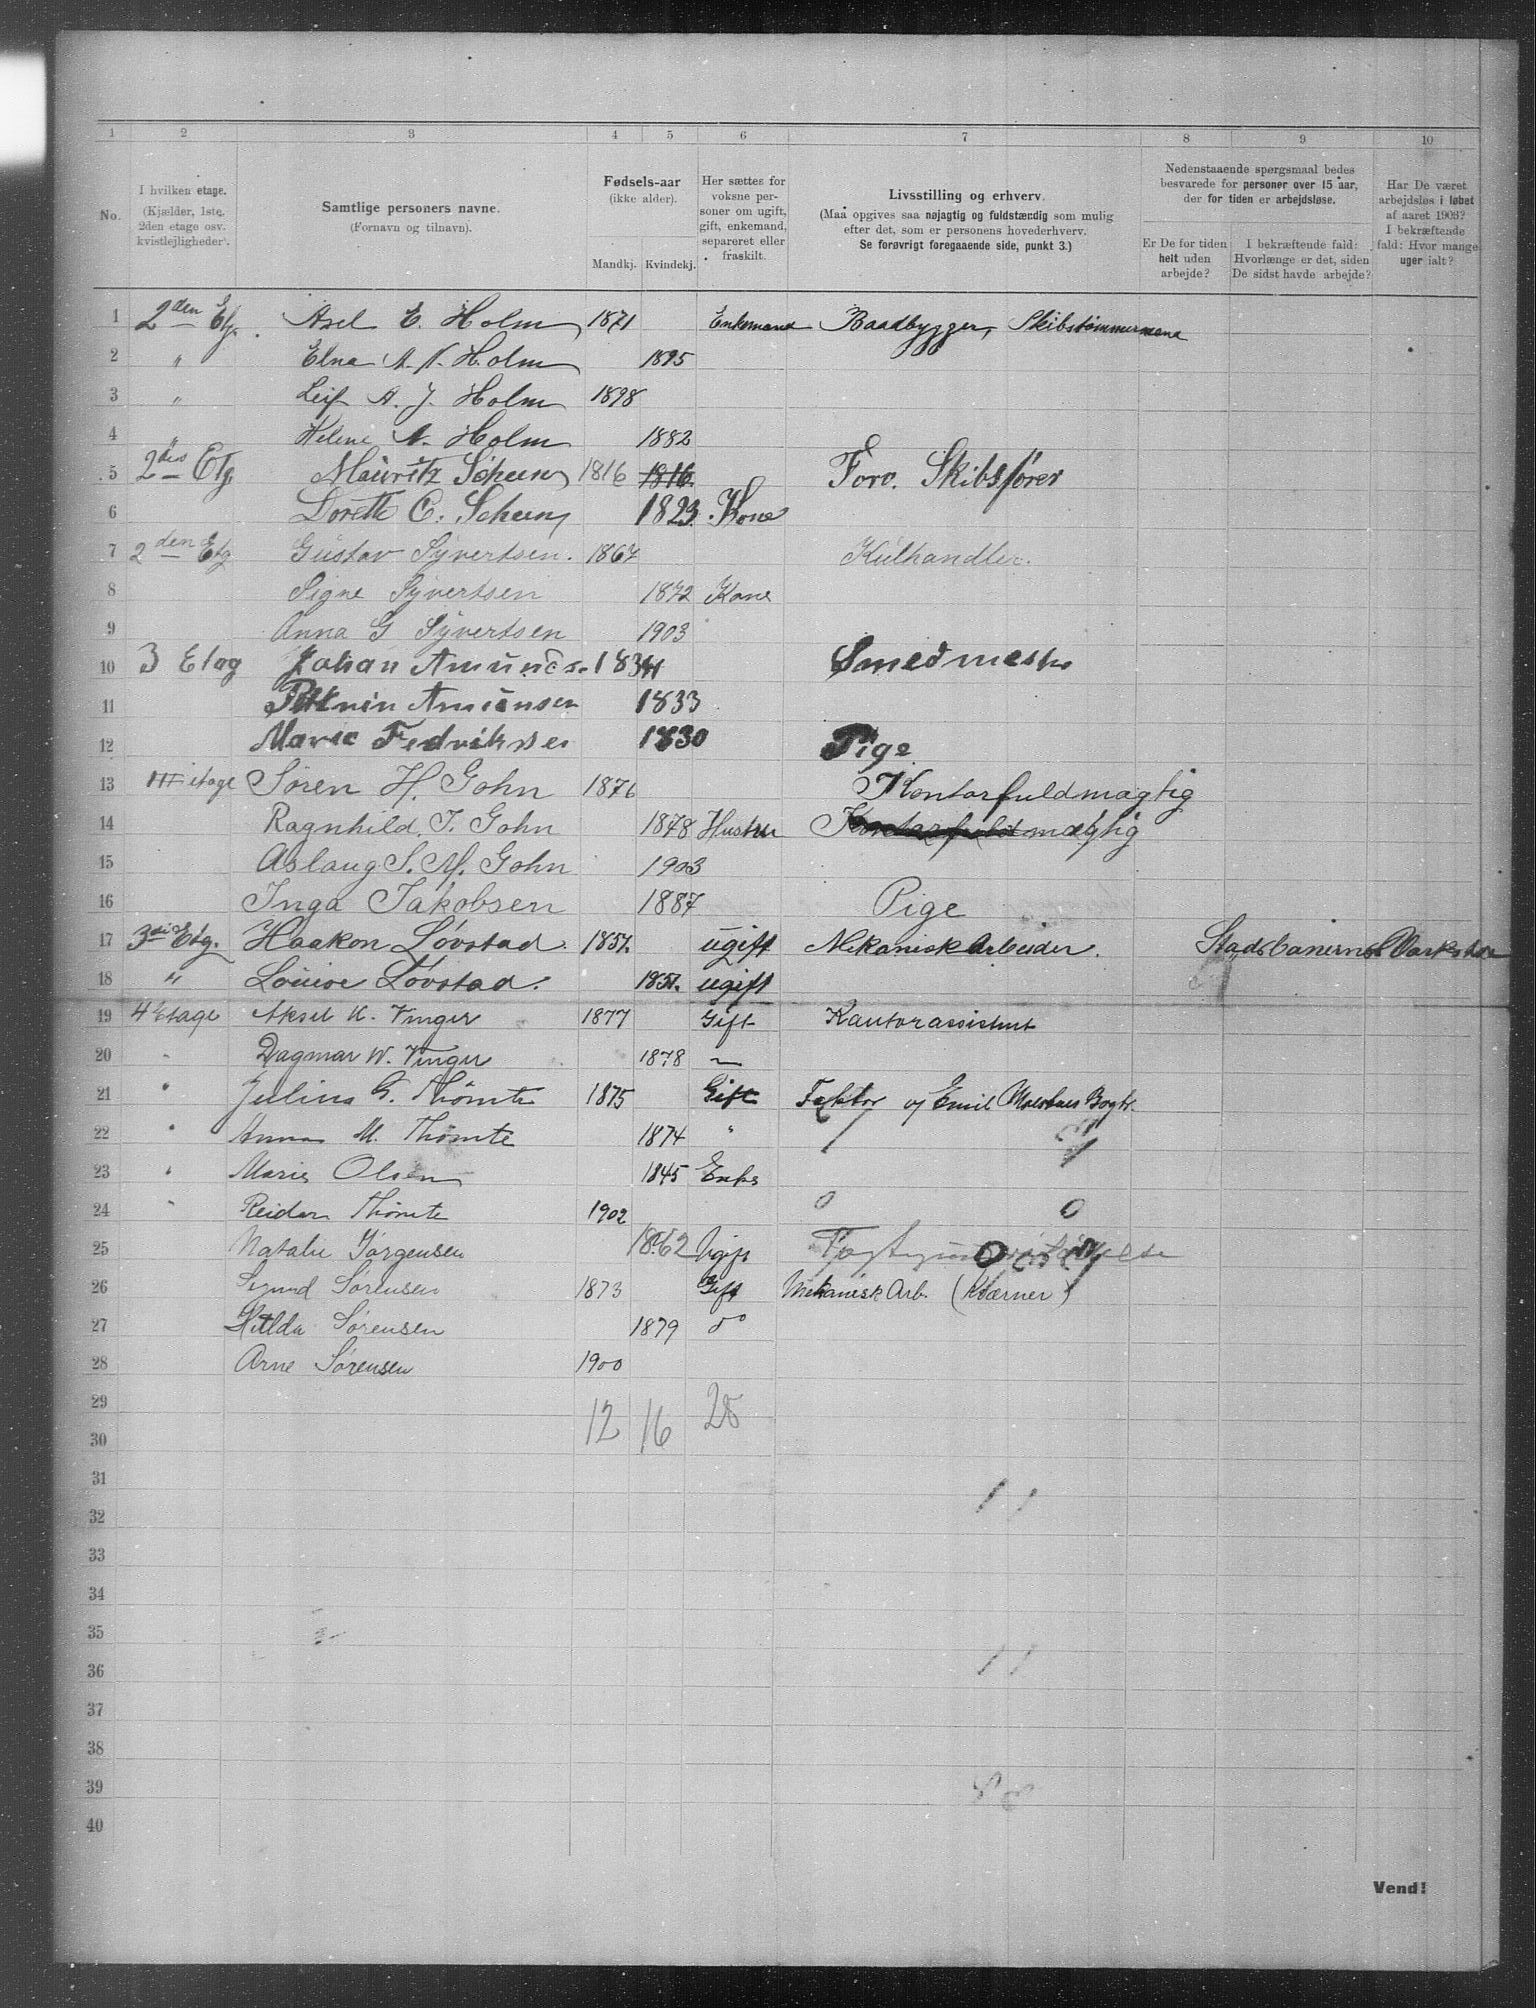 1 2 3 4 5 6 7 8 9 10
No.
I hvilken etage.
(Kjælder, 1ste,
2den etage osv.
kvistlejligheder).
Samtlige personers navne.
(Fornavn og tilnavn).
Fødsels-aar
(ikke alder).
Mandkj. Kvindekj.
Her sættes for
voksne per-
soner om ugift,
gift, enkemand,
separeret eller
fraskilt.
Livsstilling og erhverv.
(Maa opgives saa nøjagtig og fuldstændig som mulig
efter det, som er personens hovederhverv.
Se forøvrigt foregaaende side, punkt 3.)
Nedenstaaende spørgsmaal bedes
besvarede for personer over 15 aar,
der for tiden er arbejdsløse.
Er De for tiden
helt uden
arbejde?
I bekræftende fald:
Hvorlænge er det, siden
De sidst havde arbejde?
Har De været
arbejdsløs i løbet
af aaret 1903?
I bekræftende
fald: Hvor mange
uger ialt?
1 2den Etg. Axel E. Holm 1871 Enkemand Baadbygger, Skibstømmermand
2 " Elna A. N. Holm 1895
3 " Leif A. J. Holm 1898
4 " Helene A. Holm 1882
5 2den Etg. Mauritz Scheen 1816 1816 Forv. Skibsfører
6 Dorett C. Scheen 1823. Kone
7 2den Etg Gustav Syvertsen. 1867 Kulhandler.
8 Signe Syvertsen 1872 Kone
9 Anna G Syvertsen 1903
10 3 Etag Johan Amunds. 1834 Smedmester
11 Amundsen 1833
12 Marie Fedriksen 1830 Pige
13 III etage Søren H. Gohn 1876 Kontorfuldmægtig
14 Ragnhild. T. Gohn 1878 Hustru Kontorfuldmægtig
15 Aslaug S. M. Gohn 1903
16 Inga Jakobsen 1887 Pige
17 3die Etg. Haakon Løvstad. 1857. ugift Mekanisk Arbeider. Stadsbanernes Værksted
18 " Louise Løvstad. 1851. ugift
19 4 Etage Aksel K. Vinger 1877 Gift Kontorassistent
20 " Dagmar W. Vinger 1878 "
21 " Julius G. Thømte 1875 Gift Faktor Emil Moestues Bogtr.
22 " Anna M. Thømte 1874 "
23 " Marie Olsen 1845 Enke
24 " Reidar Thømte 1902
25 Natalie Jørgensen 1862 Ugift
26 Sigurd Sørensen 1873 Gift Mekanisk Arb. (Kværner)
27 Hilda Sørensen 1879 do
28 Arne Sørensen 1900
29
12 16 28
30
31
32
33
34
35
36
37
38
39
40
Vend!